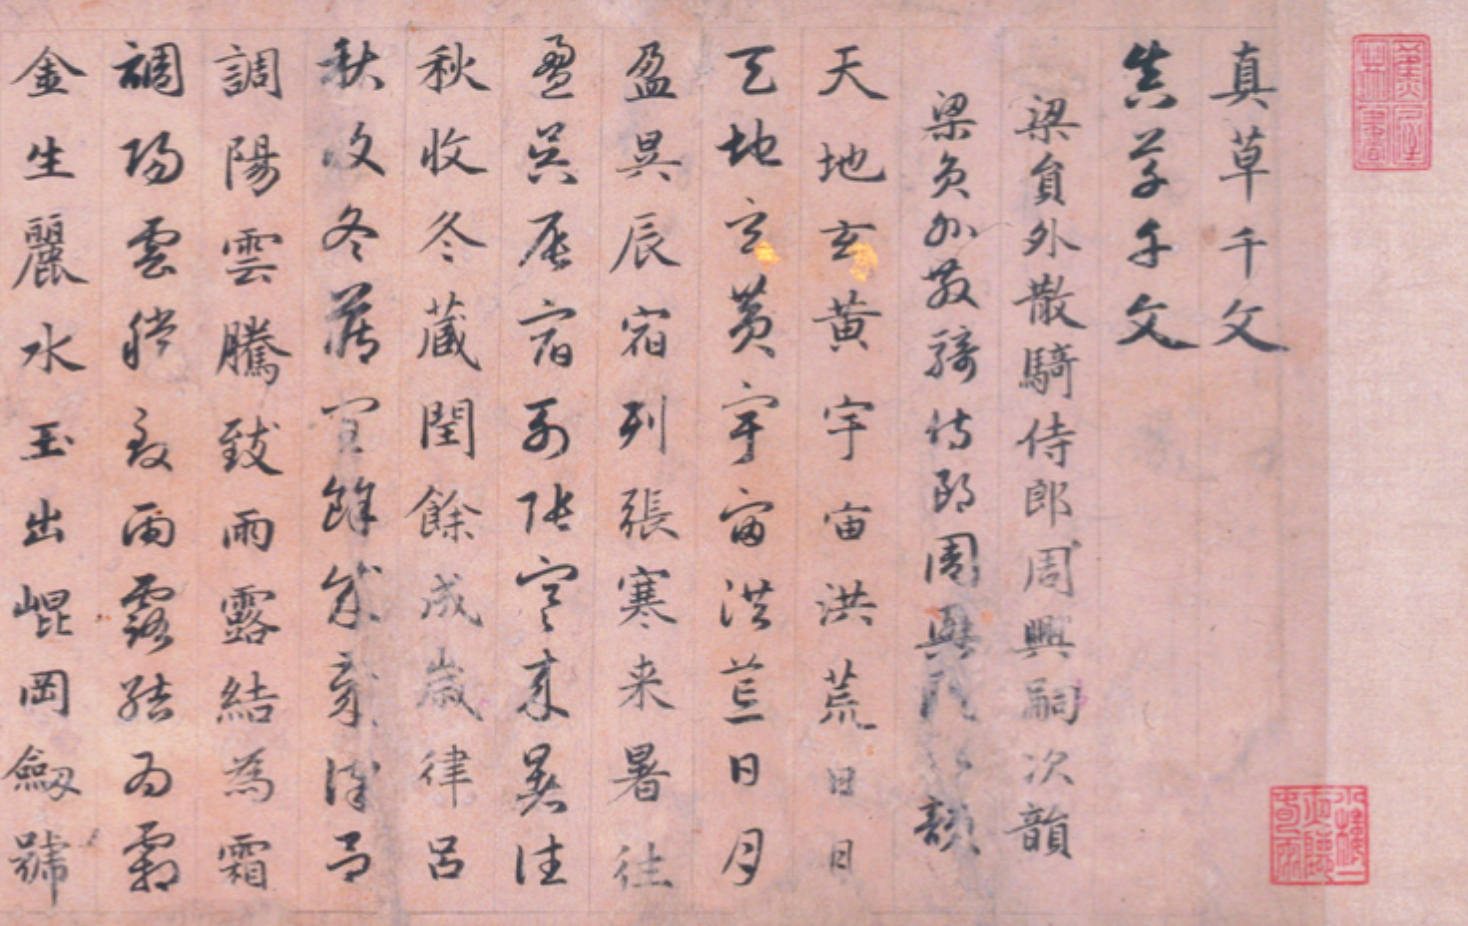 真草千文
真草千文
梁員外散騎侍郎周興嗣次韻
梁員外散騎侍郎周興韻
天地玄黄宇宙洪荒日月
天地玄黄宇宙洪荒日月
盈昃辰宿列張寒来暑往
盈昃辰宿列張寒来暑往
秋收冬藏閏餘成歲律吕
秋收冬藏閏餘成歲律吕
調陽雲騰致雨露結為霜
調陽雲騰致雨露結為霜
金生麗水玉出崐岡劔號